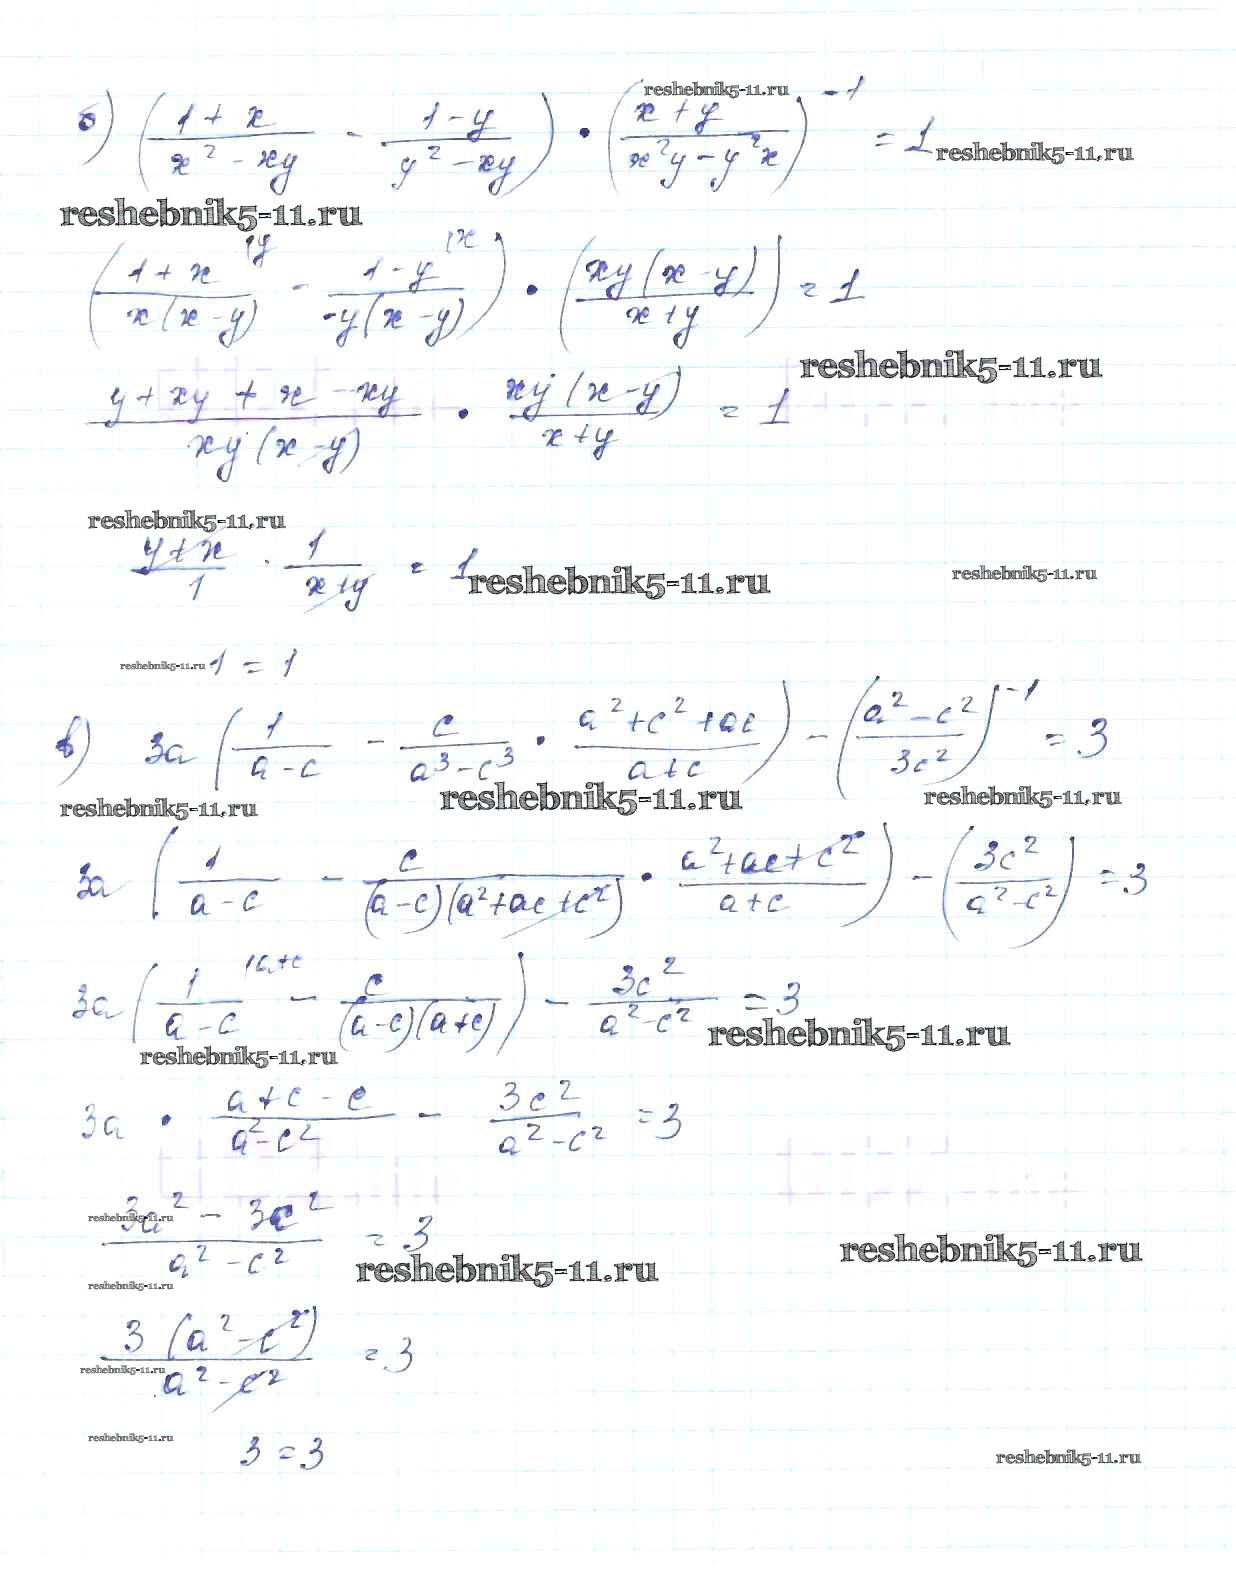 б) ((1+x)/(x²-xy) - (1-y)/(y²-xy)) • ((x+y)/(x²y-y²x))⁻¹ = 1
reshebnik5-11.ru
reshebnik5-11.ru
reshebnik5-11.ru
((1+x)/(x(x-y)) |y - (1-y)/(-y(x-y)) |x) • (xy(x-y)/(x+y)) = 1
reshebnik5-11.ru
(y+xy+x-xy)/(xy(x-y)) • xy(x-y)/(x+y) = 1
reshebnik5-11.ru
(y+x)/1 · 1/(x+y) = 1
reshebnik5-11.ru
reshebnik5-11.ru
reshebnik5-11.ru
1 = 1
в) 3a (1/(a-c) - c/(a³-c³) • (a²+c²+ac)/(a+c)) - ((a²-c²)/(3c²))⁻¹ = 3
reshebnik5-11.ru
reshebnik5-11.ru
reshebnik5-11.ru
3a (1/(a-c) - c/((a-c)(a²+ac+c²)) • (a²+ac+c²)/(a+c)) - (3c²/(a²-c²)) = 3
3a (1/(a-c) |a+c - c/((a-c)(a+c))) - 3c²/(a²-c²) = 3
reshebnik5-11.ru
reshebnik5-11.ru
3a • (a+c-c)/(a²-c²) - 3c²/(a²-c²) = 3
reshebnik5-11.ru
(3a²-3c²)/(a²-c²) = 3
reshebnik5-11.ru
reshebnik5-11.ru
reshebnik5-11.ru
3(a²-c²)/(a²-c²) = 3
reshebnik5-11.ru
reshebnik5-11.ru
3 = 3
reshebnik5-11.ru